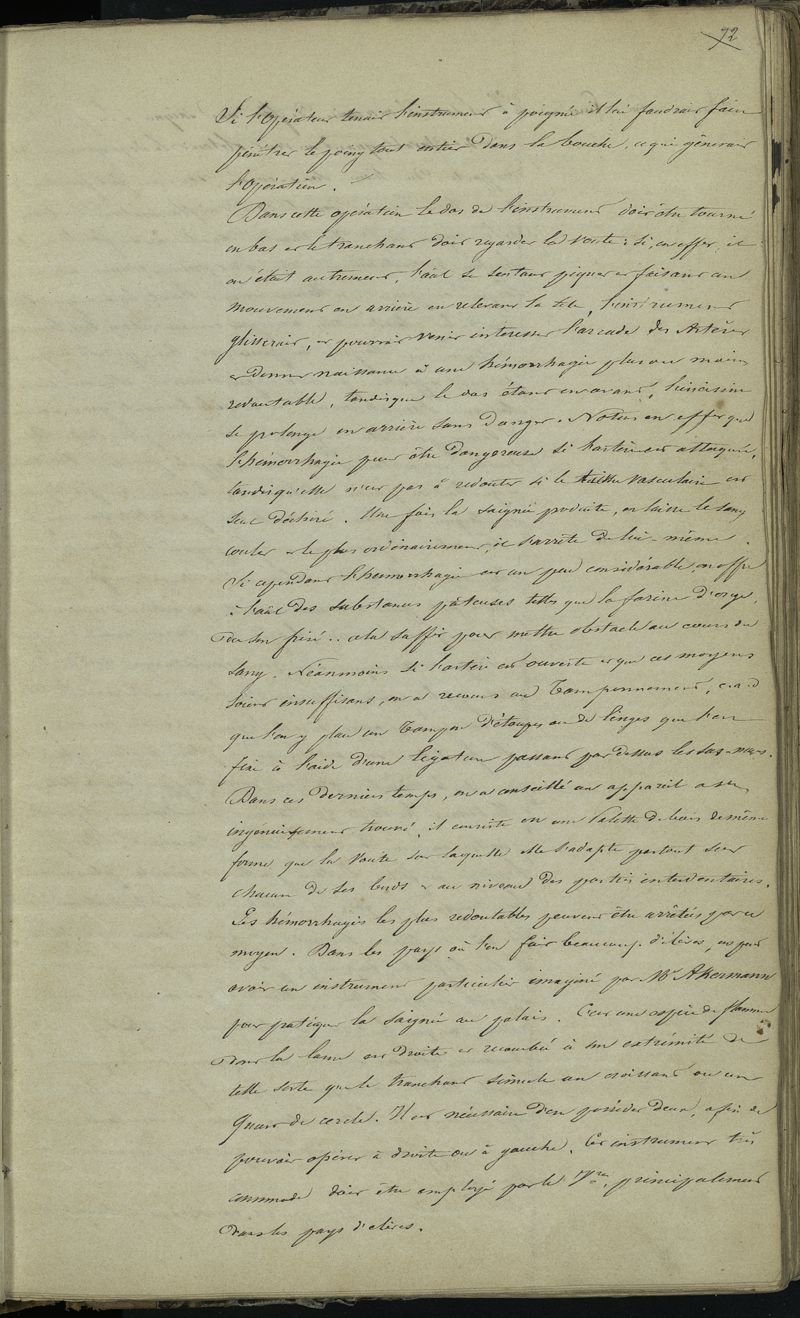 72
Si l'opérateur tenait l'instrument à poignée il lui faudrait faire
pénétrer le poing tout entier dans la bouche, ce qui gênerait
l'opération.
Dans cette opération le dos de l'instrument doit être tourné
en bas et le tranchant doit regarder la voute : si, en effet, il
en était autrement, l'âal se sentant piquer et faisant un
mouvement en arrière en relevant la tête, l'instrument
glisserait, et pourrait venir intéresser l'arcade des Artères
et donner naissance à une hémorrhagie plus ou moins
redoutable, tandisque le dos étant en avant, l'incision
se prolonge en arrière sans danger. Notons en effet que
l'hémorrhagie peut être dangereuse si l'artère est attaquée,
tandisqu'elle n'est pas à redouter si le tissu vasculaire est
seul déchiré. Une fois la saignée produite, on laisse le sang
couler et le plus ordinairement, il s'arrête de lui-même.
Si cependant l'hémorrhagie est un peu considérable, on offre
à l'âal des substances pâteuses telles que la farine d'orge,
du son frisé .. cela suffit pour mettre obstacle au cours du
sang. Néanmoins si l'artère est ouverte et que ces moyens
soient insuffisans, on a recours au Tamponnement, c.a.d
que l'on y place un Tampon d'étoupes ou de linges que l'on
fixe à l'aide d'une ligature passant par dessus les sus-nasx.
Dans ces derniers temps, on a conseillé un appareil assez
ingénieusement trouvé, il consiste en une Palette de bois de même
forme que la voute sur laquelle elle s'adapte partout sur
chacun de ses bords et au niveau des parties interdentaires.
Les hémorrhagies les plus redoutables peuvent être arrêtées par ce
moyen. Dans les pays où l'on fait beaucoup d'élèves, on peut
avoir un instrument particulier imaginé par Mr Akermann
pour pratiquer la saignée au palais. C'est une espèce de flamme
dont la lame est droite et recourbée à son extrémité de
telle sorte que le tranchant simule un croissant ou un
Quart de cercle. Il est nécessaire d'en posséder deux, afin de
pouvoir opérer à droite ou à gauche. Cet instrument très
commode doit être employé par le Vre, principalement
dans les pays d'élèves.